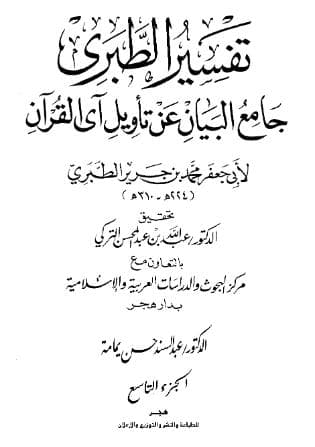 تفسير الطبري
جامع البيان عن تأويل آي القرآن
لأبي جعفر محمد بن جرير الطبري
(٢٢٤هـ - ٣١٠هـ)
تحقيق
الدكتور عبد الله بن عبد المحسن التركي
بالتعاون مع
مركز البحوث والدراسات العربية والإسلامية
بدار هجر
الدكتور عبد السند حسن يمامة
الجزء التاسع
هجر
للطباعة والنشر والتوزيع والإعلان